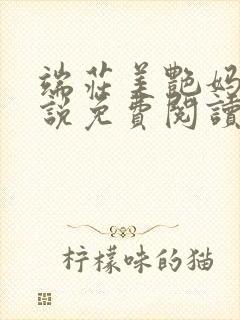 端莊美艷妈
說免費閱讀
柠檬味的猫